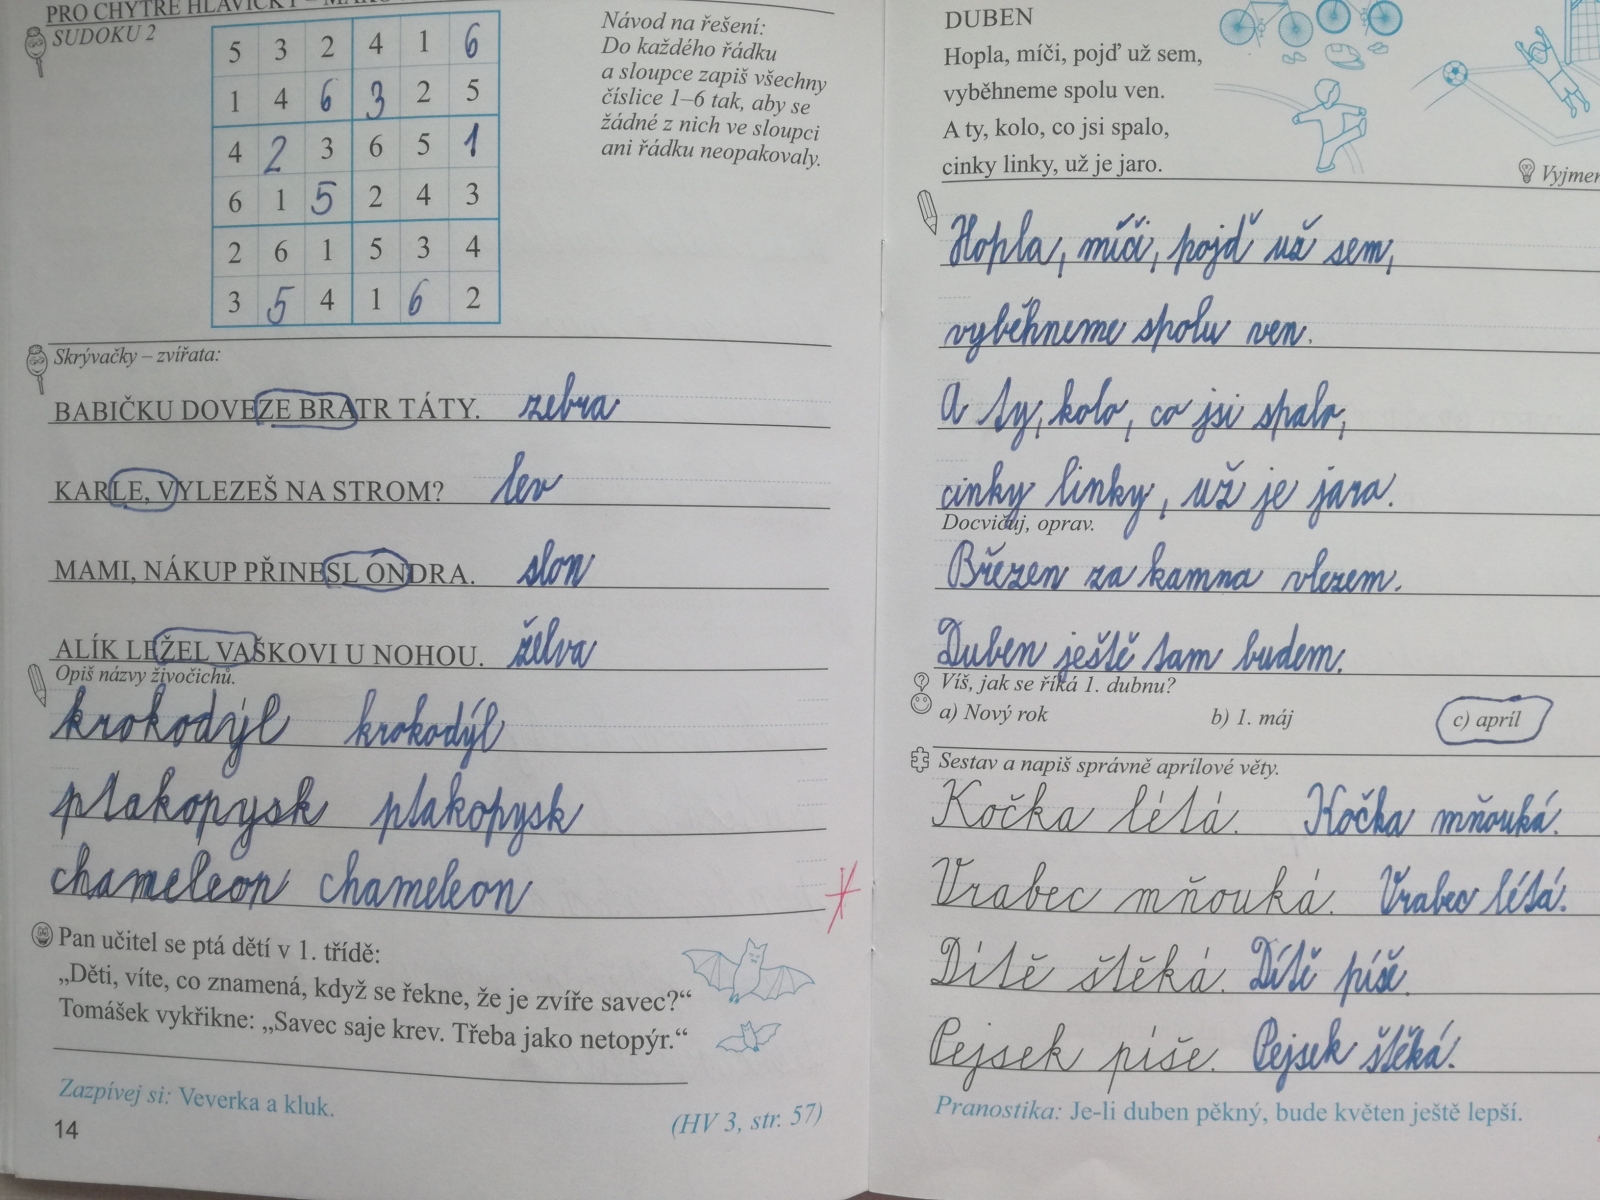 PRO CHYTRÉ HLAVIČKY –
SUDOKU 2
5 3 2 4 1 6
1 4 6 3 2 5
4 2 3 6 5 1
6 1 5 2 4 3
2 6 1 5 3 4
3 5 4 1 6 2
Návod na řešení:
Do každého řádku
a sloupce zapiš všechny
číslice 1–6 tak, aby se
žádné z nich ve sloupci
ani řádku neopakovaly.
Skrývačky – zvířata:
BABIČKU DOVEZE BRATR TÁTY. zebra
KARLE, VYLEZEŠ NA STROM? lev
MAMI, NÁKUP PŘINESL ONDRA. slon
ALÍK LEŽEL VAŠKOVI U NOHOU. želva
Opiš názvy živočichů.
krokodýl krokodýl
ptakopysk ptakopysk
chameleon chameleon
Pan učitel se ptá dětí v 1. třídě:
„Děti, víte, co znamená, když se řekne, že je zvíře savec?“
Tomášek vykřikne: „Savec saje krev. Třeba jako netopýr.“
Zazpívej si: Veverka a kluk.
(HV 3, str. 57)
14
DUBEN
Hopla, míči, pojď už sem,
vyběhneme spolu ven.
A ty, kolo, co jsi spalo,
cinky linky, už je jaro.
Hopla, míči, pojď už sem,
vyběhneme spolu ven.
A ty, kolo, co jsi spalo,
cinky linky, už je jara.
Docvičuj, oprav.
Březen za kamna vlezem.
Duben ještě tam budem.
Víš, jak se říká 1. dubnu?
a) Nový rok b) 1. máj c) apríl
Sestav a napiš správně aprílové věty.
Kočka létá. Kočka mňouká.
Vrabec mňouká. Vrabec létá.
Dítě štěká. Dítě píše.
Pejsek píše. Pejsek štěká.
Pranostika: Je-li duben pěkný, bude květen ještě lepší.